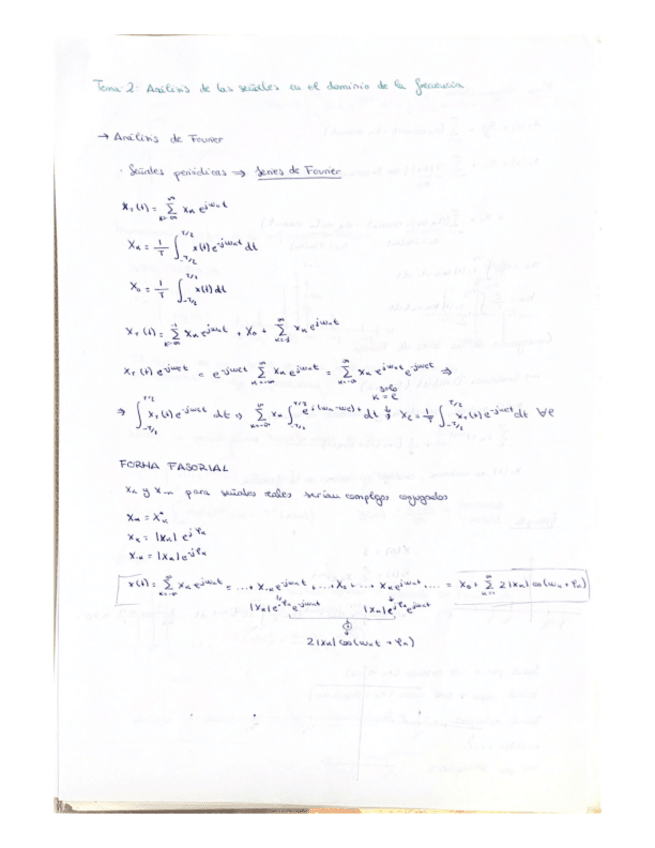 Tema 2: Análisis de las señales en el dominio de la frecuencia
→ Análisis de Fourier
· Señales periódicas ⇒ Series de Fourier
x_T(t) = Σ_{k=-∞}^{∞} x_k e^{jω_k t}
X_k = 1/T ∫_{-T/2}^{T/2} x(t) e^{-jω_k t} dt
X_0 = 1/T ∫_{-T/2}^{T/2} x(t) dt
x_T(t) = Σ x_k e^{jω_k t} + X_0 + Σ^{∞} x_k e^{jω_k t}
x_T(t) e^{-jω_ℓ t} = e^{-jω_ℓ t} Σ_{k=-∞}^{∞} x_k e^{jω_k t} = Σ_{k=-∞}^{∞} x_k e^{jω_k t} e^{-jω_ℓ t} ⇒
sólo
k = ℓ
⇒ ∫_{-T/2}^{T/2} x_T(t) e^{-jω_ℓ t} dt ⇒ Σ_{k=-∞}^{∞} x_k ∫_{-T/2}^{T/2} e^{j(ω_k-ω_ℓ)t} dt ⇒ X_ℓ = 1/T ∫_{-T/2}^{T/2} x_T(t) e^{-jω_ℓ t} dt ∀ℓ
FORMA FASORIAL
x_k y x_{-k} para señales reales serían complejos conjugados
x_k = |x_k| e^{jφ_k}
x_{-k} = |x_k| e^{-jφ_k}
x(t) = Σ_{k=-∞}^{∞} x_k e^{jω_k t} = ...+ x_{-k} e^{-jω_k t} +...+ X_0 +... x_k e^{jω_k t} ... = X_0 + Σ^{∞} 2|x_k| cos(ω_k + φ_k)
|x_k| e^{-jφ_k} e^{-jω_k t} |x_k| e^{jφ_k} e^{jω_k t}
2|x_k| cos(ω_k t + φ_k)